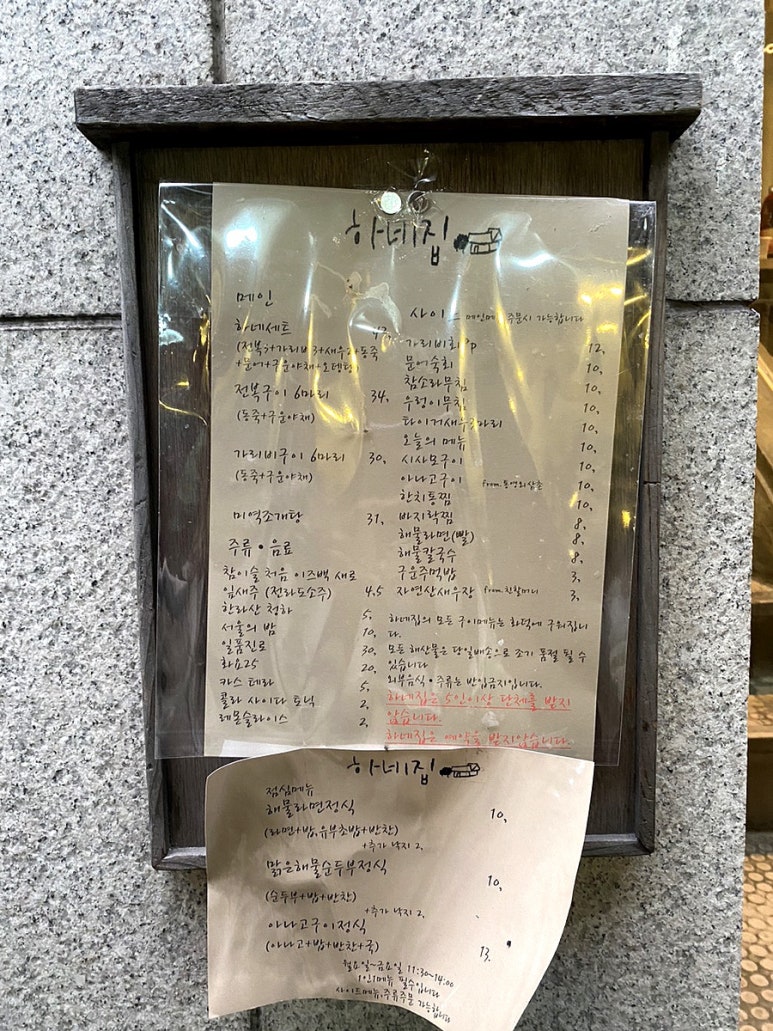 하네집
메인
하네세트
(전복 +가리비3+새우2+동죽
+문어+구운야채+오뎅탕)
전복구이 6마리 34,
(동죽+구운야채)
가리비구이 6마리 30,
(동죽+구운야채)
미역조개탕 31,
주류•음료
참이슬 처음 이즈백 새로
잎새주 (전라도소주) 4.5
한라산 청하 5,
서울의 밤 10,
일품진로 30,
화요25 20,
카스 테라 5,
콜라 사이다 토닉 2,
레몬슬라이스 2,
사이드 주문시 가능합니다
가리비회 12,
문어숙회 10,
참소라무침 10,
우렁이무침 10,
타이거새우3마리 10,
오늘의 메뉴
시사모구이 10,
아나고구이 10,
한치통찜 10,
바지락찜 8,
해물라면(빨) 8,
해물칼국수 8,
구운주먹밥 3,
자연산새우장 from.친할머니 3,
하네집의 모든 구이메뉴는 화덕에 구워집니
다.
모든 해산물은 당일배송으로 조기 품절 될 수
있습니다
외부음식•주류는 반입금지입니다.
하네집은 5인이상 단체를 받지
않습니다.
하네집은 예약을 받지않습니다.
하네집
점심메뉴
해물라면정식 10,
(라면+밥,유부초밥+반찬)
+추가 낙지 2,
맑은해물순두부정식 10,
(순두부+밥+반찬)
+추가 낙지 2,
아나고구이정식 13.
(아나고+밥+반찬+국)
월요일~금요일 11:30~14:00
1인1메뉴 필수입니다
사이드메뉴,주류주문 가능합니다